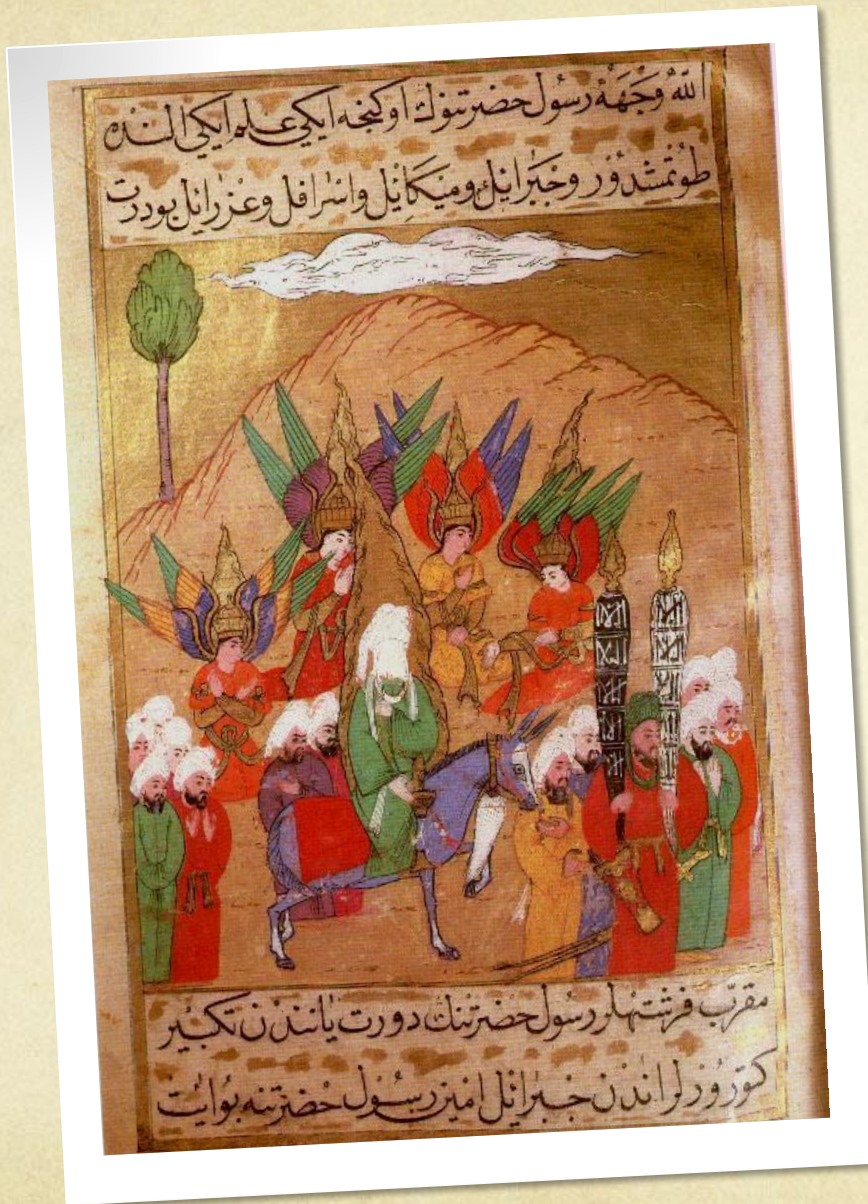 الله وَجْهَهُ رسُول حضرتنوك اوكنجه ايكى علم ايكى النده
طوتمشدور وجبرائيل وميكائيل واسرافل وعزرائل بو درت
مقرّب فرشتهلر رسول حضرتنك دورت ياننده ن تكبير
كتورورلر اندن جبرائل امين رسول حضرتنه بو ايت